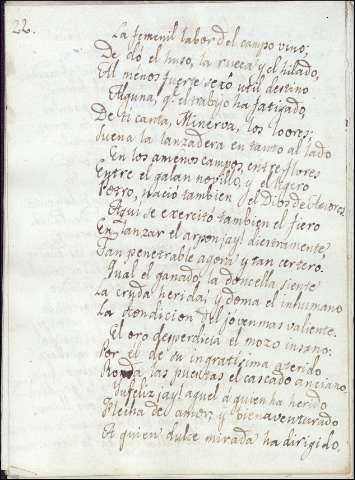 22.
La femenil labor del campo vino;
De dó el huso, la rueca y el hilado,
Al menos fuerte sexô util destino
Alguna, q.e el trabajo ha fatigado,
De ti canta, Minerva, los loores;
Suena la lanzadera en tanto al lado
En los amenos campos, entre flores
Entre el galan novillo, y el ligero
Potro, nació tambien el Dios de Amores.
Aqui se exercitó tambien el fiero
En lanzar el arpon ¡ay! diestramente,
Tan penetrable agora y tan certero.
Qual el ganado, la doncella siente
La cruda herida, y doma el inhumano
La condicion del joven mas valiente.
El oro desperdicia el mozo insano:
Por el de su ingratisima querido
Ronda las puertas el cascado anciano.
Infeliz ¡ay! aquel a quien ha herido
Flecha del amor; y bienaventurado
A quien dulce mirada ha dirigido.